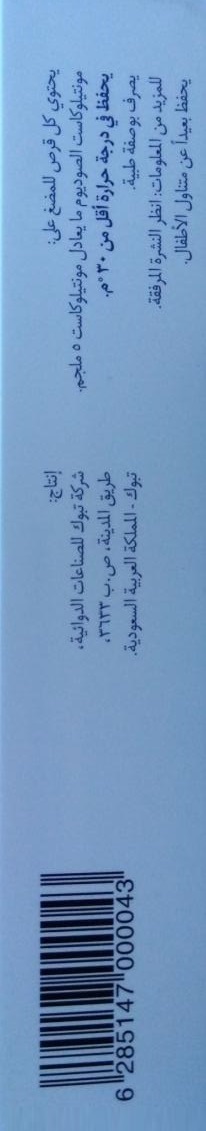 يحتوي كل قرص للمضغ على:
مونتيلوكاست الصوديوم ما يعادل مونتيلوكاست ٥ ملجم.
يحفظ في درجة حرارة أقل من ٣٠°م.
يصرف بوصفة طبية.
للمزيد من المعلومات: انظر النشرة المرفقة.
يحفظ بعيداً عن متناول الأطفال.
إنتاج:
شركة تبوك للصناعات الدوائية،
طريق المدينة، ص.ب ٣٦٣٣،
تبوك - المملكة العربية السعودية.
6 285147 000043